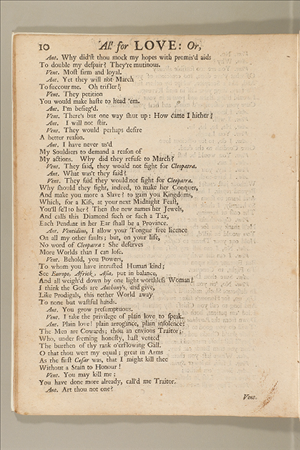 10 All for LOVE: Or,
Ant. Why did'st thou mock my hopes with promis'd aids
To double my despair? They're mutinous.
Vent. Most firm and loyal.
Ant. Yet they will not March
To succour me. Oh trifler!
Vent. They petition
You would make haste to head 'em.
Ant. I'm besieg'd.
Vent. There's but one way shut up: How came I hither?
Ant. I will not stir.
Vent. They would perhaps desire
A better reason.
Ant. I have never us'd
My Souldiers to demand a reason of
My actions. Why did they refuse to March?
Vent. They said, they would not fight for Cleopatra.
Ant. What was't they said?
Vent. They said they would not fight for Cleopatra.
Why should they fight, indeed, to make her Conquer,
And make you more a Slave? to gain you Kingdoms,
Which, for a Kiss, at your next Midnight Feast,
You'll sell to her? Then she new names her Jewels,
And calls this Diamond such or such a Tax,
Each Pendant in her Ear shall be a Province.
Ant. Ventidius, I allow your Tongue free licence
On all my other faults; but, on your life,
No word of Cleopatra: She deserves
More Worlds than I can lose.
Vent. Behold, you Powers,
To whom you have intrusted Human kind;
See Europe, Affrick, Asia, put in balance,
And all weigh'd down by one light worthless Woman!
I think the Gods are Antony's, and give,
Like Prodigals, this nether World away
To none but wastful hands.
Ant. You grow presumptuous.
Vent. I take the privilege of plain love to speak.
Ant. Plain love! plain arrogance, plain insolence!
Thy Men are Cowards; thou an envious Traitor;
Who, under seeming honesty, hast vented
The burthen of thy rank o'erflowing Gall.
O that thou wert my equal; great in Arms
As the first Cæsar was, that I might kill thee
Without a Stain to Honour!
Vent. You may kill me;
You have done more already, call'd me Traitor.
Ant. Art thou not one?
Vent.